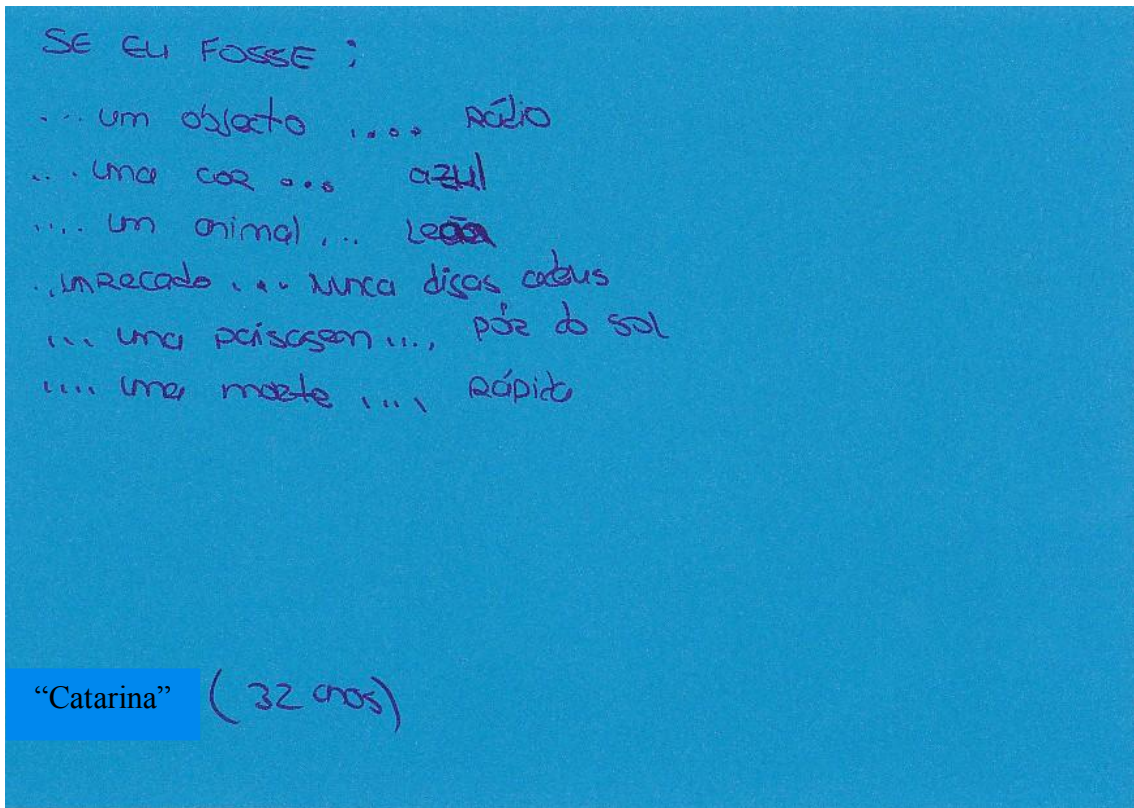 SE EU FOSSE :
... um objecto .... Rádio
... uma cor ... azul
.... um animal ... Leão
.. um Recado ... Nunca digas adeus
... uma paisagem ...., pôr do sol
.... uma morte .... Rápida
“Catarina” (32 anos)